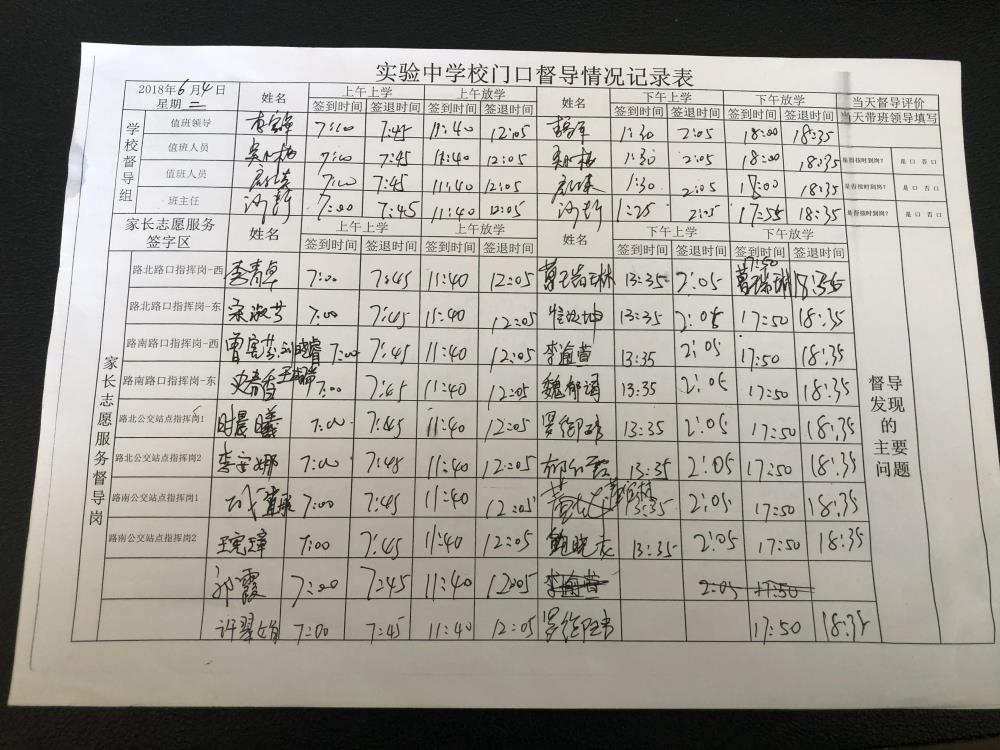 实验中学校门口督导情况记录表
2018年6月4日 姓名 上午上学 上午放学 姓名 下午上学 下午放学 当天督导评价
星期二 签到时间 签退时间 签到时间 签退时间 签到时间 签退时间 签到时间 签退时间 当天带班领导填写
学校督导组
值班领导 7:00 7:45 11:40 12:05 1:30 2:05 18:00 18:35
值班人员 7:00 7:45 11:40 12:05 1:30 2:05 18:00 18:35 是否按时到岗? 是口 否口
值班人员 7:00 7:45 11:40 12:05 1:30 2:05 18:00 18:35 是否按时到岗? 是口 否口
班主任 7:00 7:45 11:40 12:05 1:25 2:05 17:55 18:35 是否按时到岗? 是口 否口
家长志愿服务签字区 姓名 上午上学 上午放学 姓名 下午上学 下午放学
签到时间 签退时间 签到时间 签退时间 签到时间 签退时间 签到时间 签退时间
家长志愿服务督导岗
路北路口指挥岗-西 李青卓 7:00 7:45 11:40 12:05 13:35 2:05 17:50 18:35
路北路口指挥岗-东 7:00 7:45 11:40 12:05 13:35 2:05 17:50 18:35
路南路口指挥岗-西 7:00 7:45 11:40 12:05 李渝萱 13:35 2:05 17:50 18:35
路南路口指挥岗-东 7:00 7:45 11:40 12:05 魏郁涵 13:35 2:05 17:50 18:35
路北公交站点指挥岗1 时晨曦 7:00 7:45 11:40 12:05 13:35 2:05 17:50 18:35
路北公交站点指挥岗2 李安娜 7:00 7:45 11:40 12:05 13:35 2:05 17:50 18:35
路南公交站点指挥岗1 7:00 7:45 11:40 12:05 13:35 2:05 17:50 18:35
路南公交站点指挥岗2 7:00 7:45 11:40 12:05 鲍晓表 13:35 2:05 17:50 18:35
祁霞 7:00 7:45 11:40 12:05 李渝萱 2:05 17:50
许翠娟 7:00 7:45 11:40 12:05 17:50 18:35
督导发现的主要问题